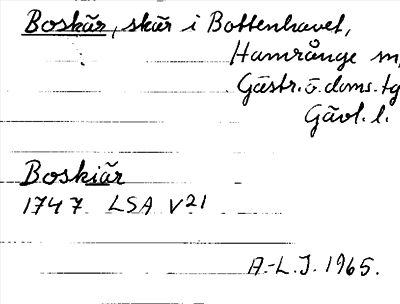 Boskär, skär i Bottenhavet,
Hamrånge sn,
Gästr. ö. doms. tg
Gävl. l.
Boskiär
1747 LSA V21
A.-L.J. 1965.